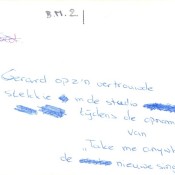 B.M. 2
Gerard op z'n vertrouwde
stekkie in de studio
tijdens de opnam
van
„Take me anywh
de nieuwe sing